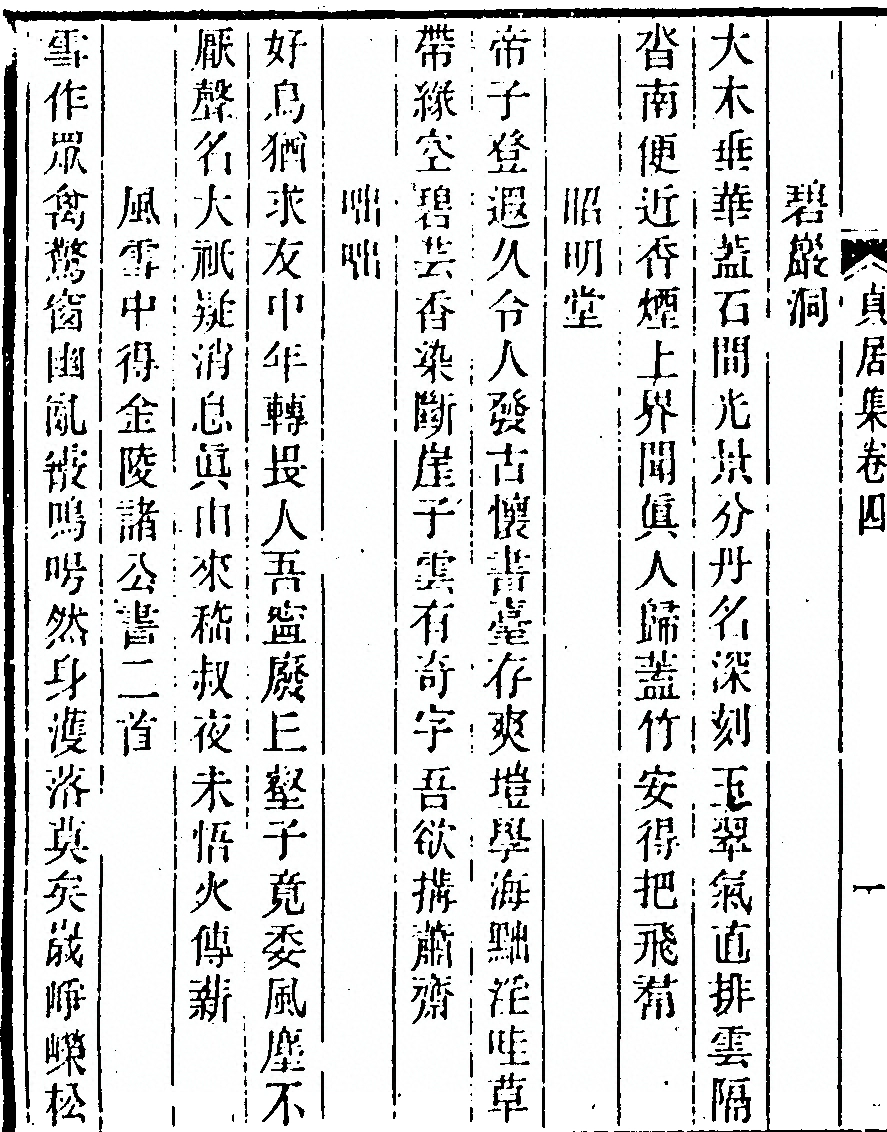 貞居集卷四
一
碧巖洞
大木垂華蓋石間光景分丹名深刻玉翠氣直排雲隔
沓南便近香煙上界聞眞人歸蓋竹安得把飛
昭明堂
帝子登遐久令人發古懷書臺存爽塏學海黜淫哇草
帶緣空碧芸香染斷崖子雲有奇字吾欲搆蕭齋
咄咄
好鳥猶求友中年轉畏人吾寍廢丘壑子竟委風塵不
厭聲名大祇疑消息眞由來嵇叔夜未悟火傳薪
風雪中得金陵諸公書二首
雪作眾禽驚窗幽亂被鳴呺然身濩落莫矣歲崢嶸松